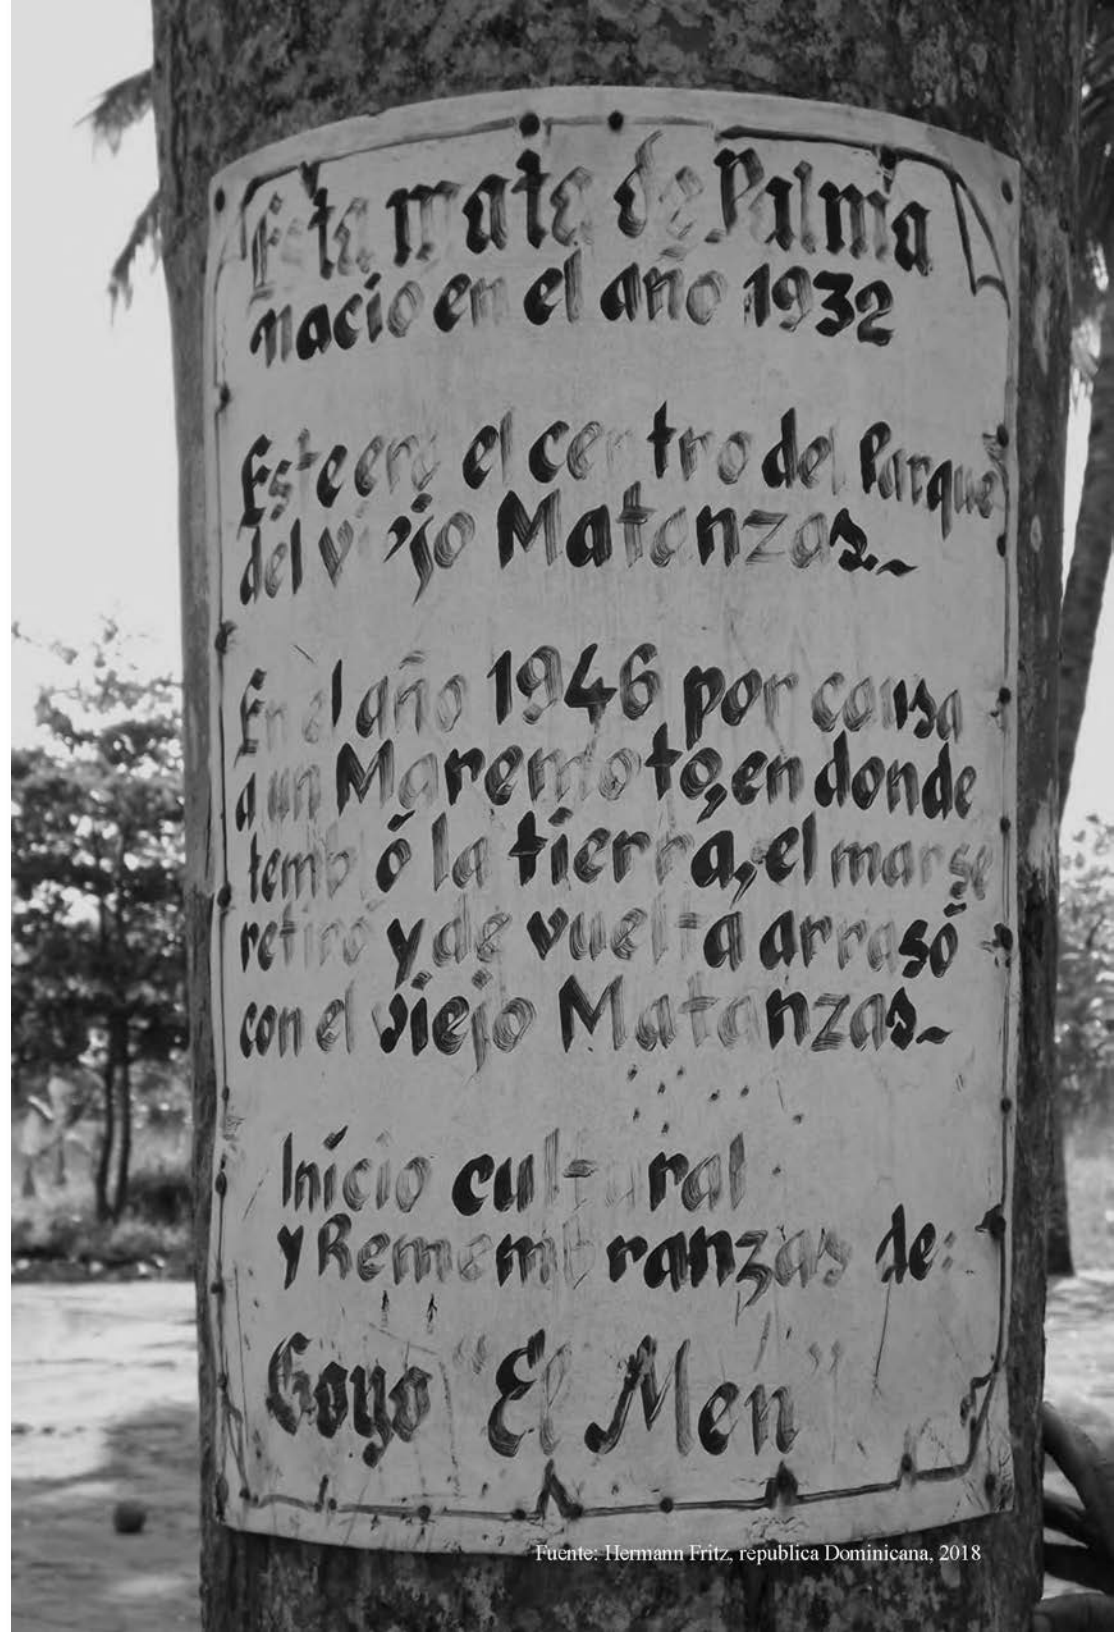 Esta mata de Palma
nacío en el año 1932
Este era el centro del Parque
del viejo Matanzas.~
En el año 1946 por causa
a un Maremoto, en donde
tembló la tíerra, el mar se
retiró y de vuelta arrasó
con el viejo Matanzas~
Início cultural
y Remembranzas de:
Goyo "El Men"
Fuente: Hermann Fritz, republica Dominicana, 2018